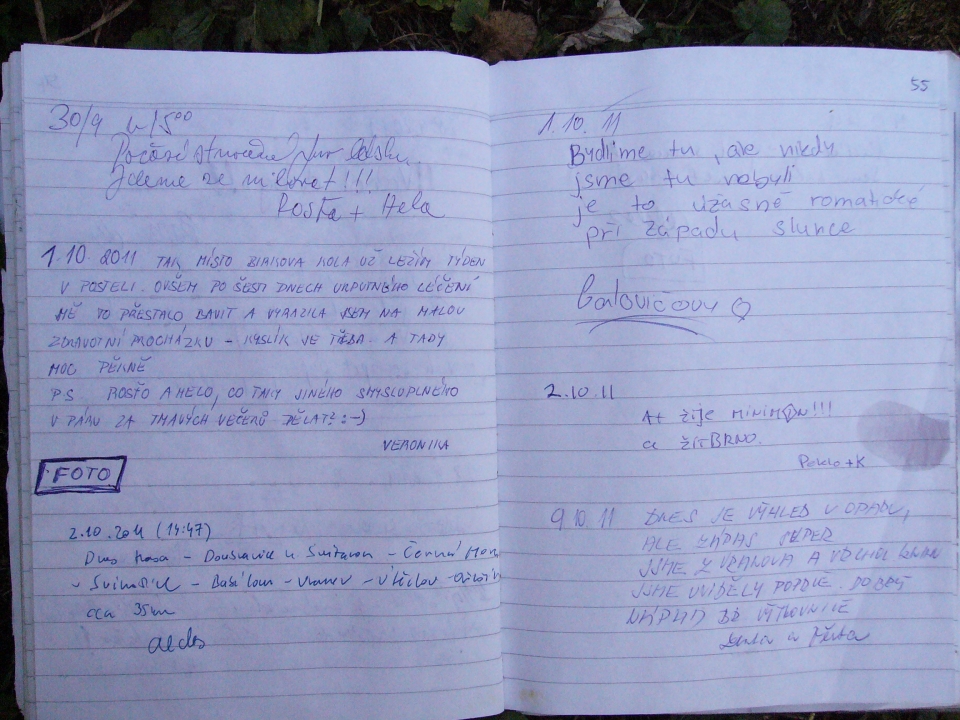 30/9
Jdeme se milovat!!!
Rosťa + Hela
1.10. 2011 TAK MÍSTO KOLA UŽ LEŽÍM TÝDEN
V POSTELI. OVŠEM PO ŠESTI DNECH URPUTNÉHO LÉČENÍ
MĚ TO PŘESTALO BAVIT A VYRAZILA JSEM NA MALOU
ZDRAVOTNÍ PROCHÁZKU - KYSLÍK JE TŘEBA. A TADY
MOC PĚKNĚ
PS ROSŤO A HELO, CO TAKY JINÉHO SMYSLUPLNÉHO
V PÁRU ZA TMAVÝCH VEČERŮ DĚLAT? :-)
VERONIKA
FOTO
2.10.2011 (14:47)
Dnes trasa - Doubravice n. Svitavou - Černá Hora
- Svinošice - - Vranov -
cca 35km
55
1.10.11
Bydlíme tu, ale nikdy
jsme tu nebyli
je to úžasně romatické
při západu slunce
2.10.11
Ať žije
a ŽÍT BRNO.
9.10.11 DNES JE VÝHLED V OPARU,
ALE ZÁPAS SUPER
JSME Z VRANOVA A
JSME UVIDĚLY POPRVÉ. DOBRÝ
NÁPAD